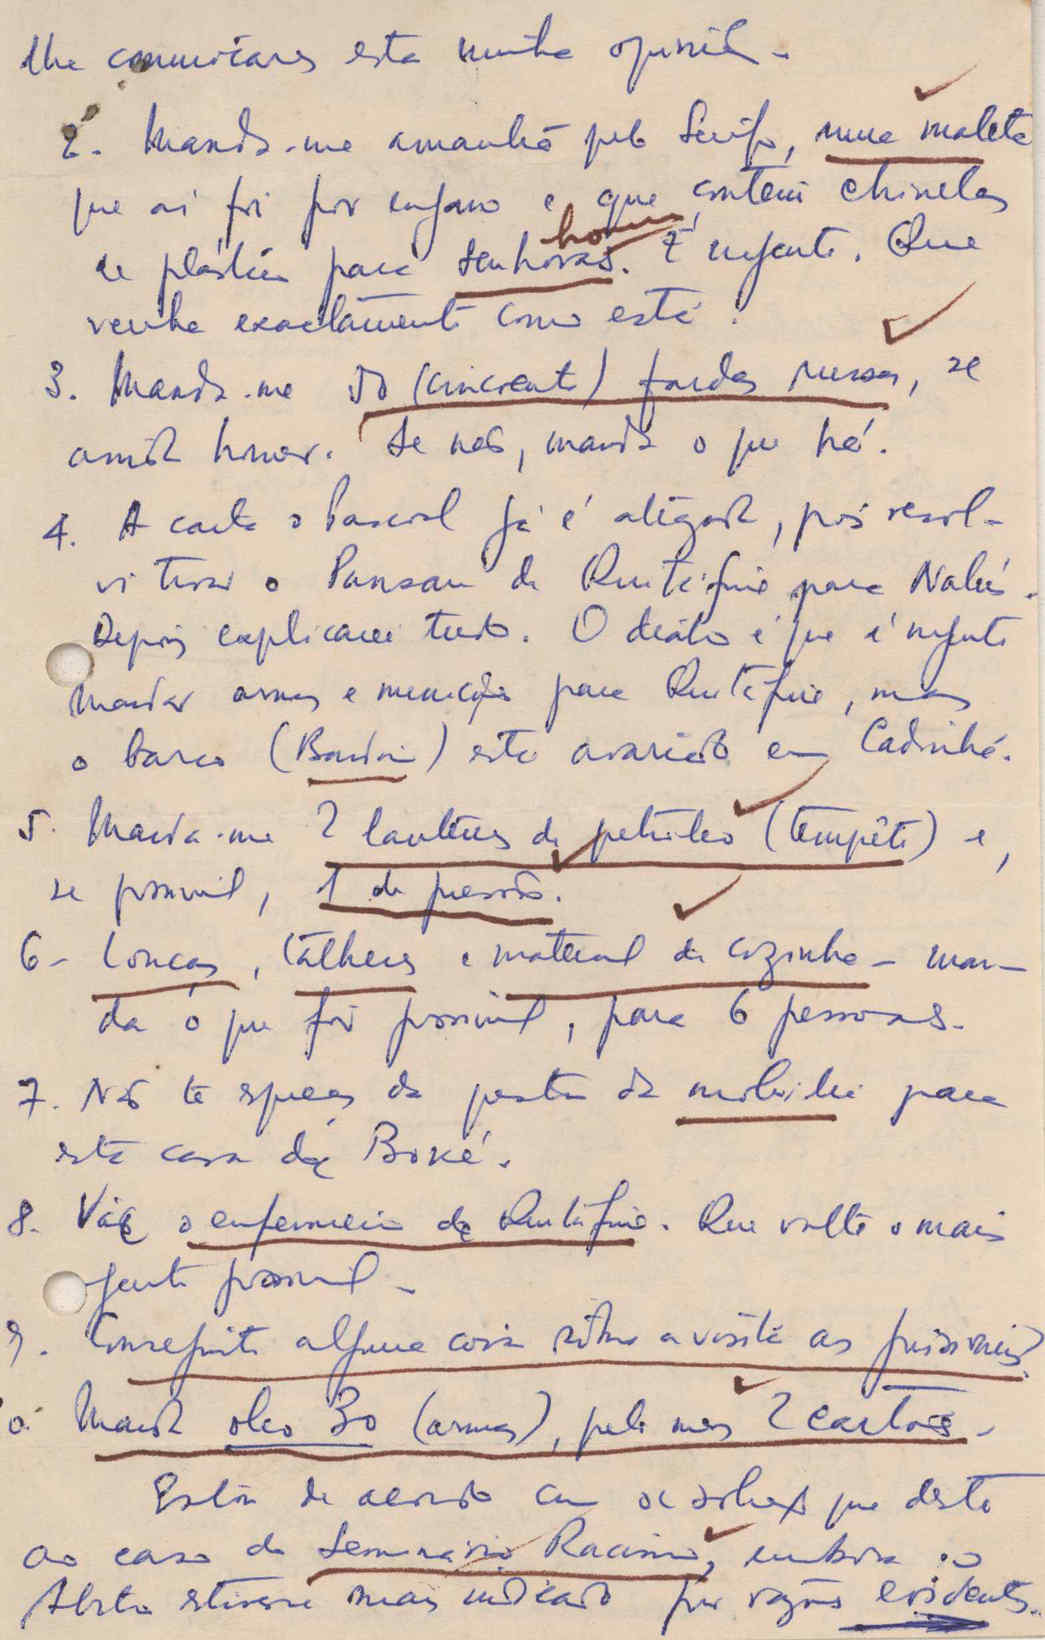 lhe comunicares esta minha opinião.
2. Manda-me amanhã pelo Serifo, uma maleta
que aí foi por engano e que contém chinelas
homem
de plástico para senhoras. É urgente. Que
venha exactamente como está.
3. Manda-me 50 (cincoenta) fardas russas, se
ainda houver. Se não, manda o que há.
4. A carta o Pascoal já é atigada, pois resol-
vi tirar o Pansau de Quitáfine para Nalú.
Depois explicarei tudo. O diabo é que é urgente
mandar armas e munições para Quitáfine, mas
o barco (Bandim) está avariado em Cadinhé.
5. Manda-me 2 lanternas de petróleo (tempête) e,
se possível, 1 de pressão.
6- Louças, talheres e material de cozinha - man-
da o que for possível, para 6 pessoas.
7. Não te esqueças da questão da mobília para
esta casa de Boké.
8. Vai o enfermeiro de Quitáfine. Que volte o mais
possível -
9. Conseguiste alguma coisa sobre a visita aos prisioneiros?
Manda oleo 30 (armas), pelo menos 2 cartões -
Estou de acordo com a solução que deste
ao caso do Seminário Racismo, embora o
estivesse mais indicado por razões evidentes.